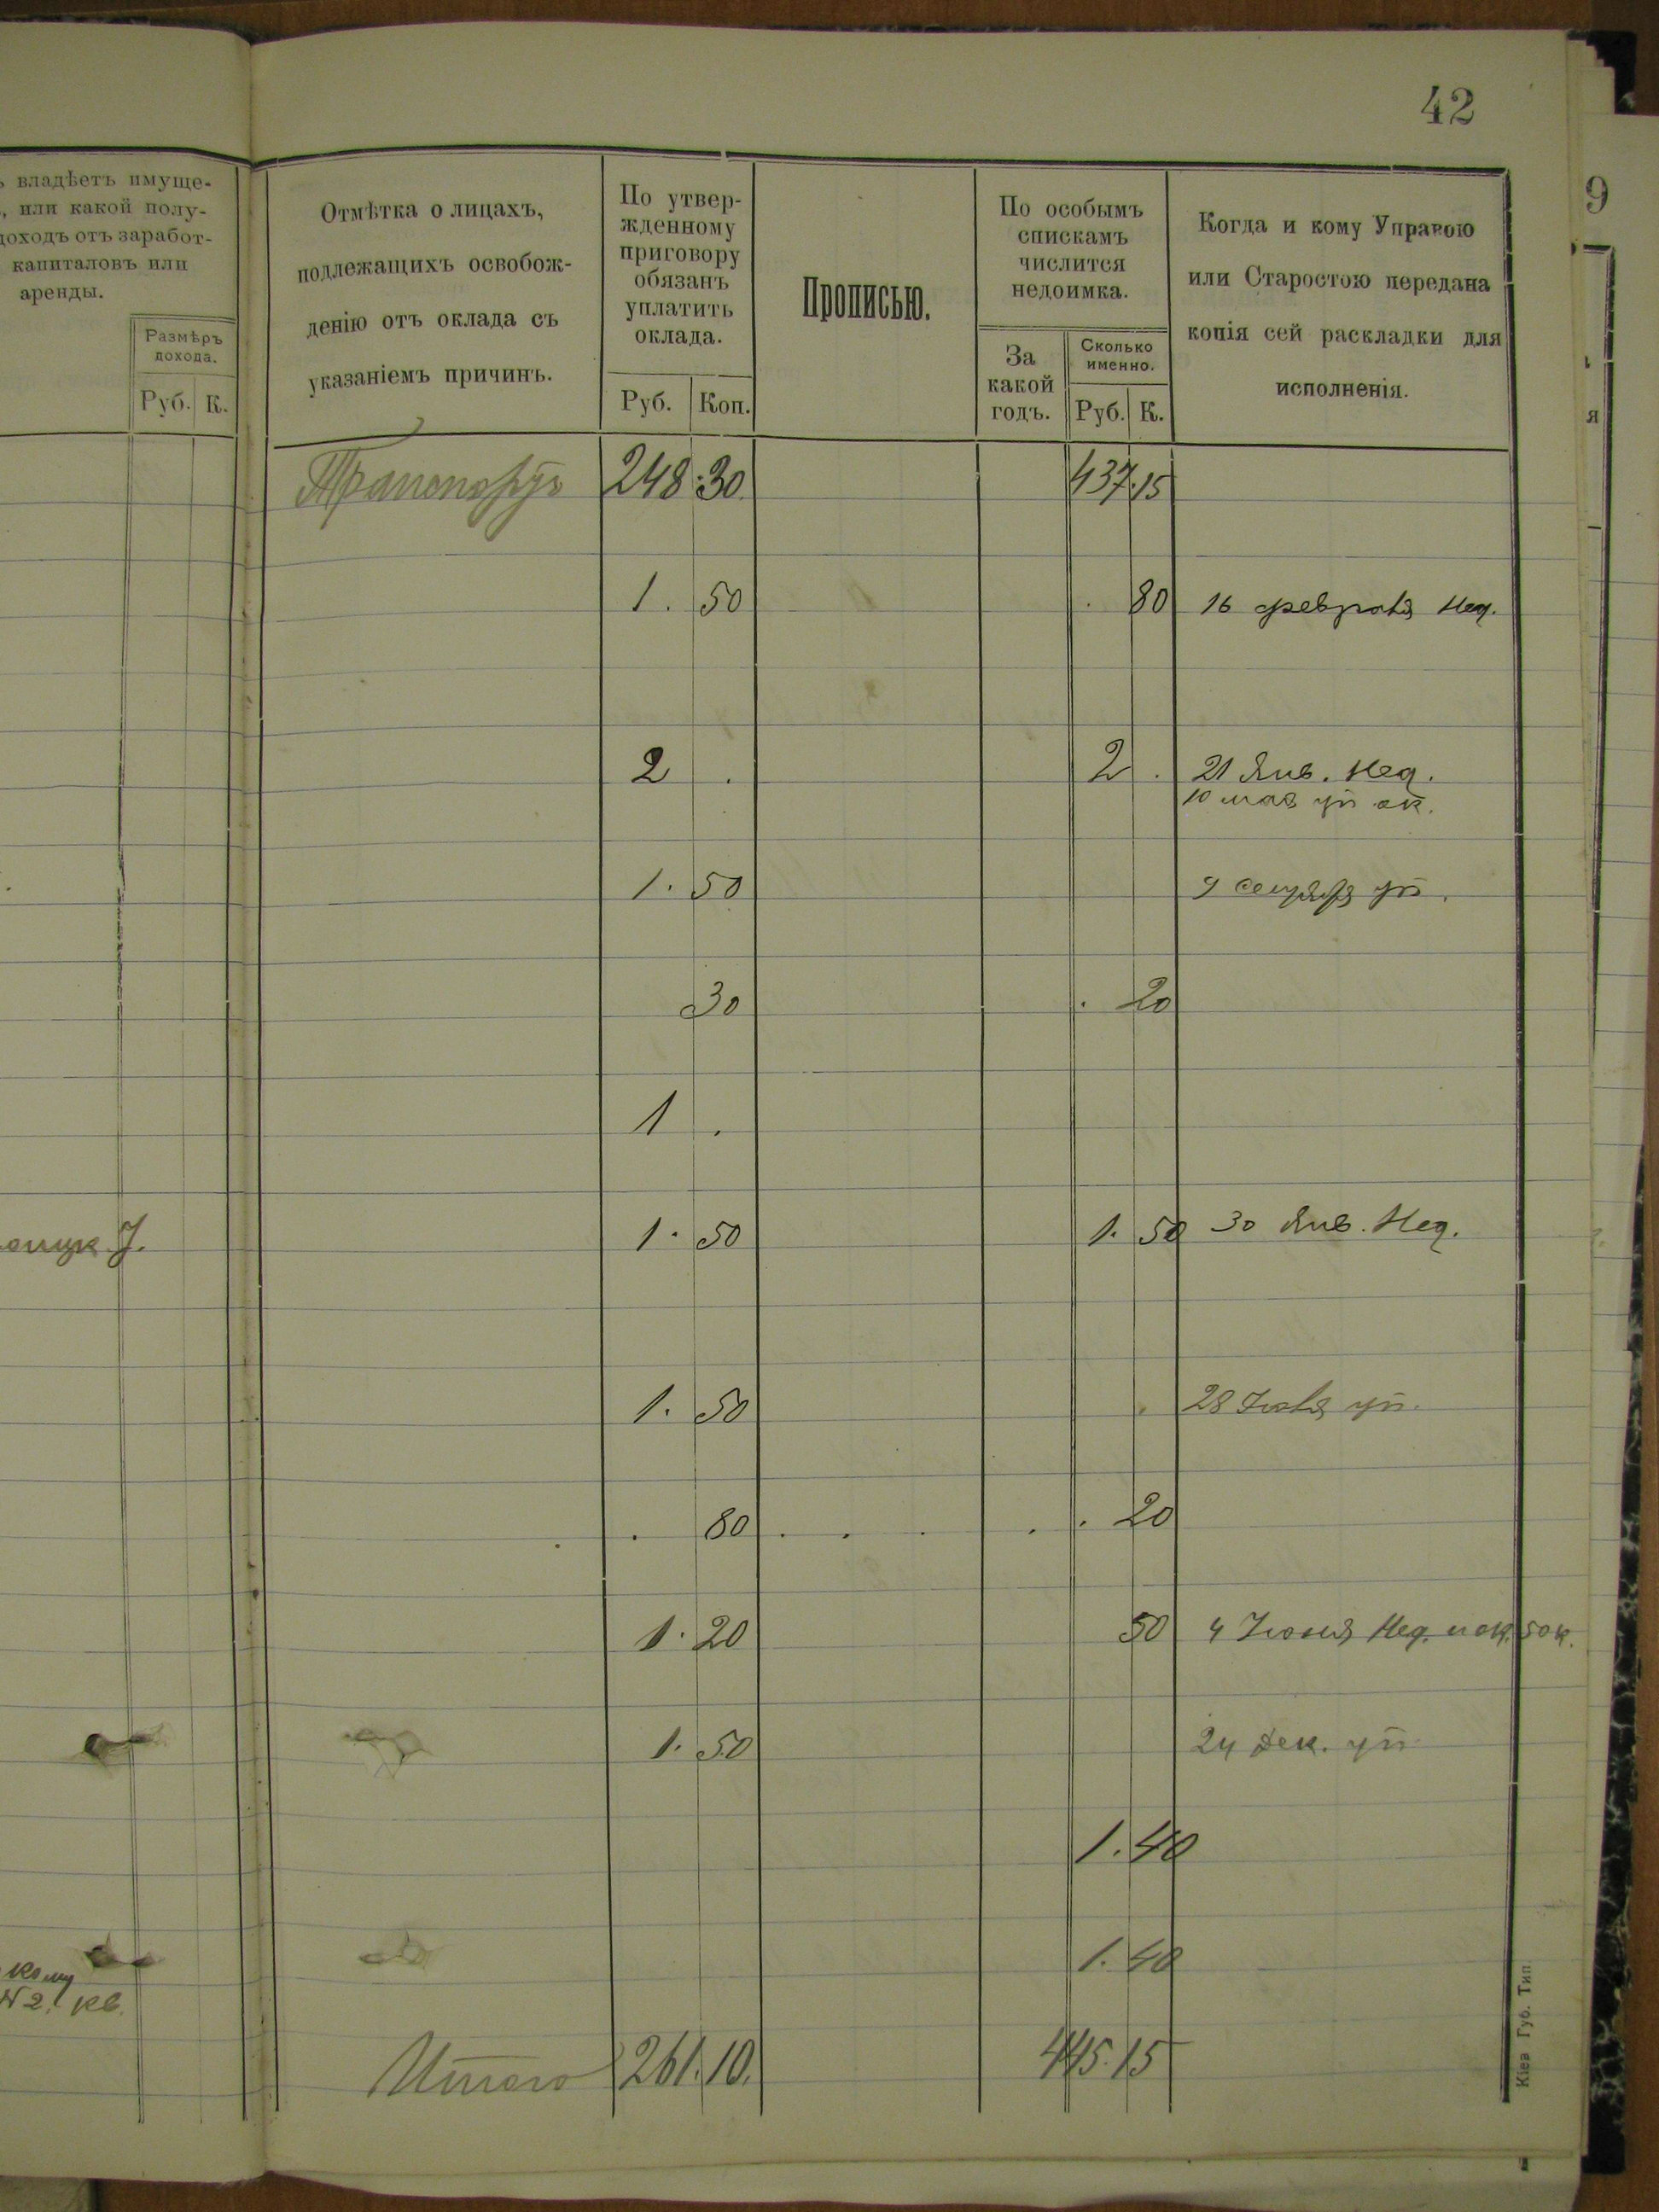 42
9
ъ владѣетъ имуще-
, или какой полу-
доходъ отъ заработ-
капиталовъ или
аренды.
Размѣръ
дохода.
Руб. К.
Отмѣтка о лицахъ,
подлежащихъ освобож-
денію отъ оклада съ
указаніемъ причинъ.
По утвер-
жденному
приговору
обязанъ
уплатить
оклада.
Руб. Коп.
Прописью.
По особымъ
спискамъ
числится
недоимка.
За
какой
годъ.
Сколько
именно.
Руб. К.
Когда и кому Управою
или Старостою передана
копія сей раскладки для
исполненія.
я
Транспортъ 248.30. 437.15
1. 50 . 80 16 февраля Нед.
2 . 2 . 21 Янв. Нед.
10 мая уп ок.
1. 50 9 уп.
30 . 20
1 .
1. 50 1. 50 30 Янв. Нед.
1. 50 . 28 Іюля уп.
. 80 . . . . . 20
1. 20 50 4 Іюня Нед. и ок. 50к.
1. 50 24 Дек. уп
1. 40
1. 40
кому
№2. кв.
Итого 261.10. 445.15
Кіев Губ. Тип.